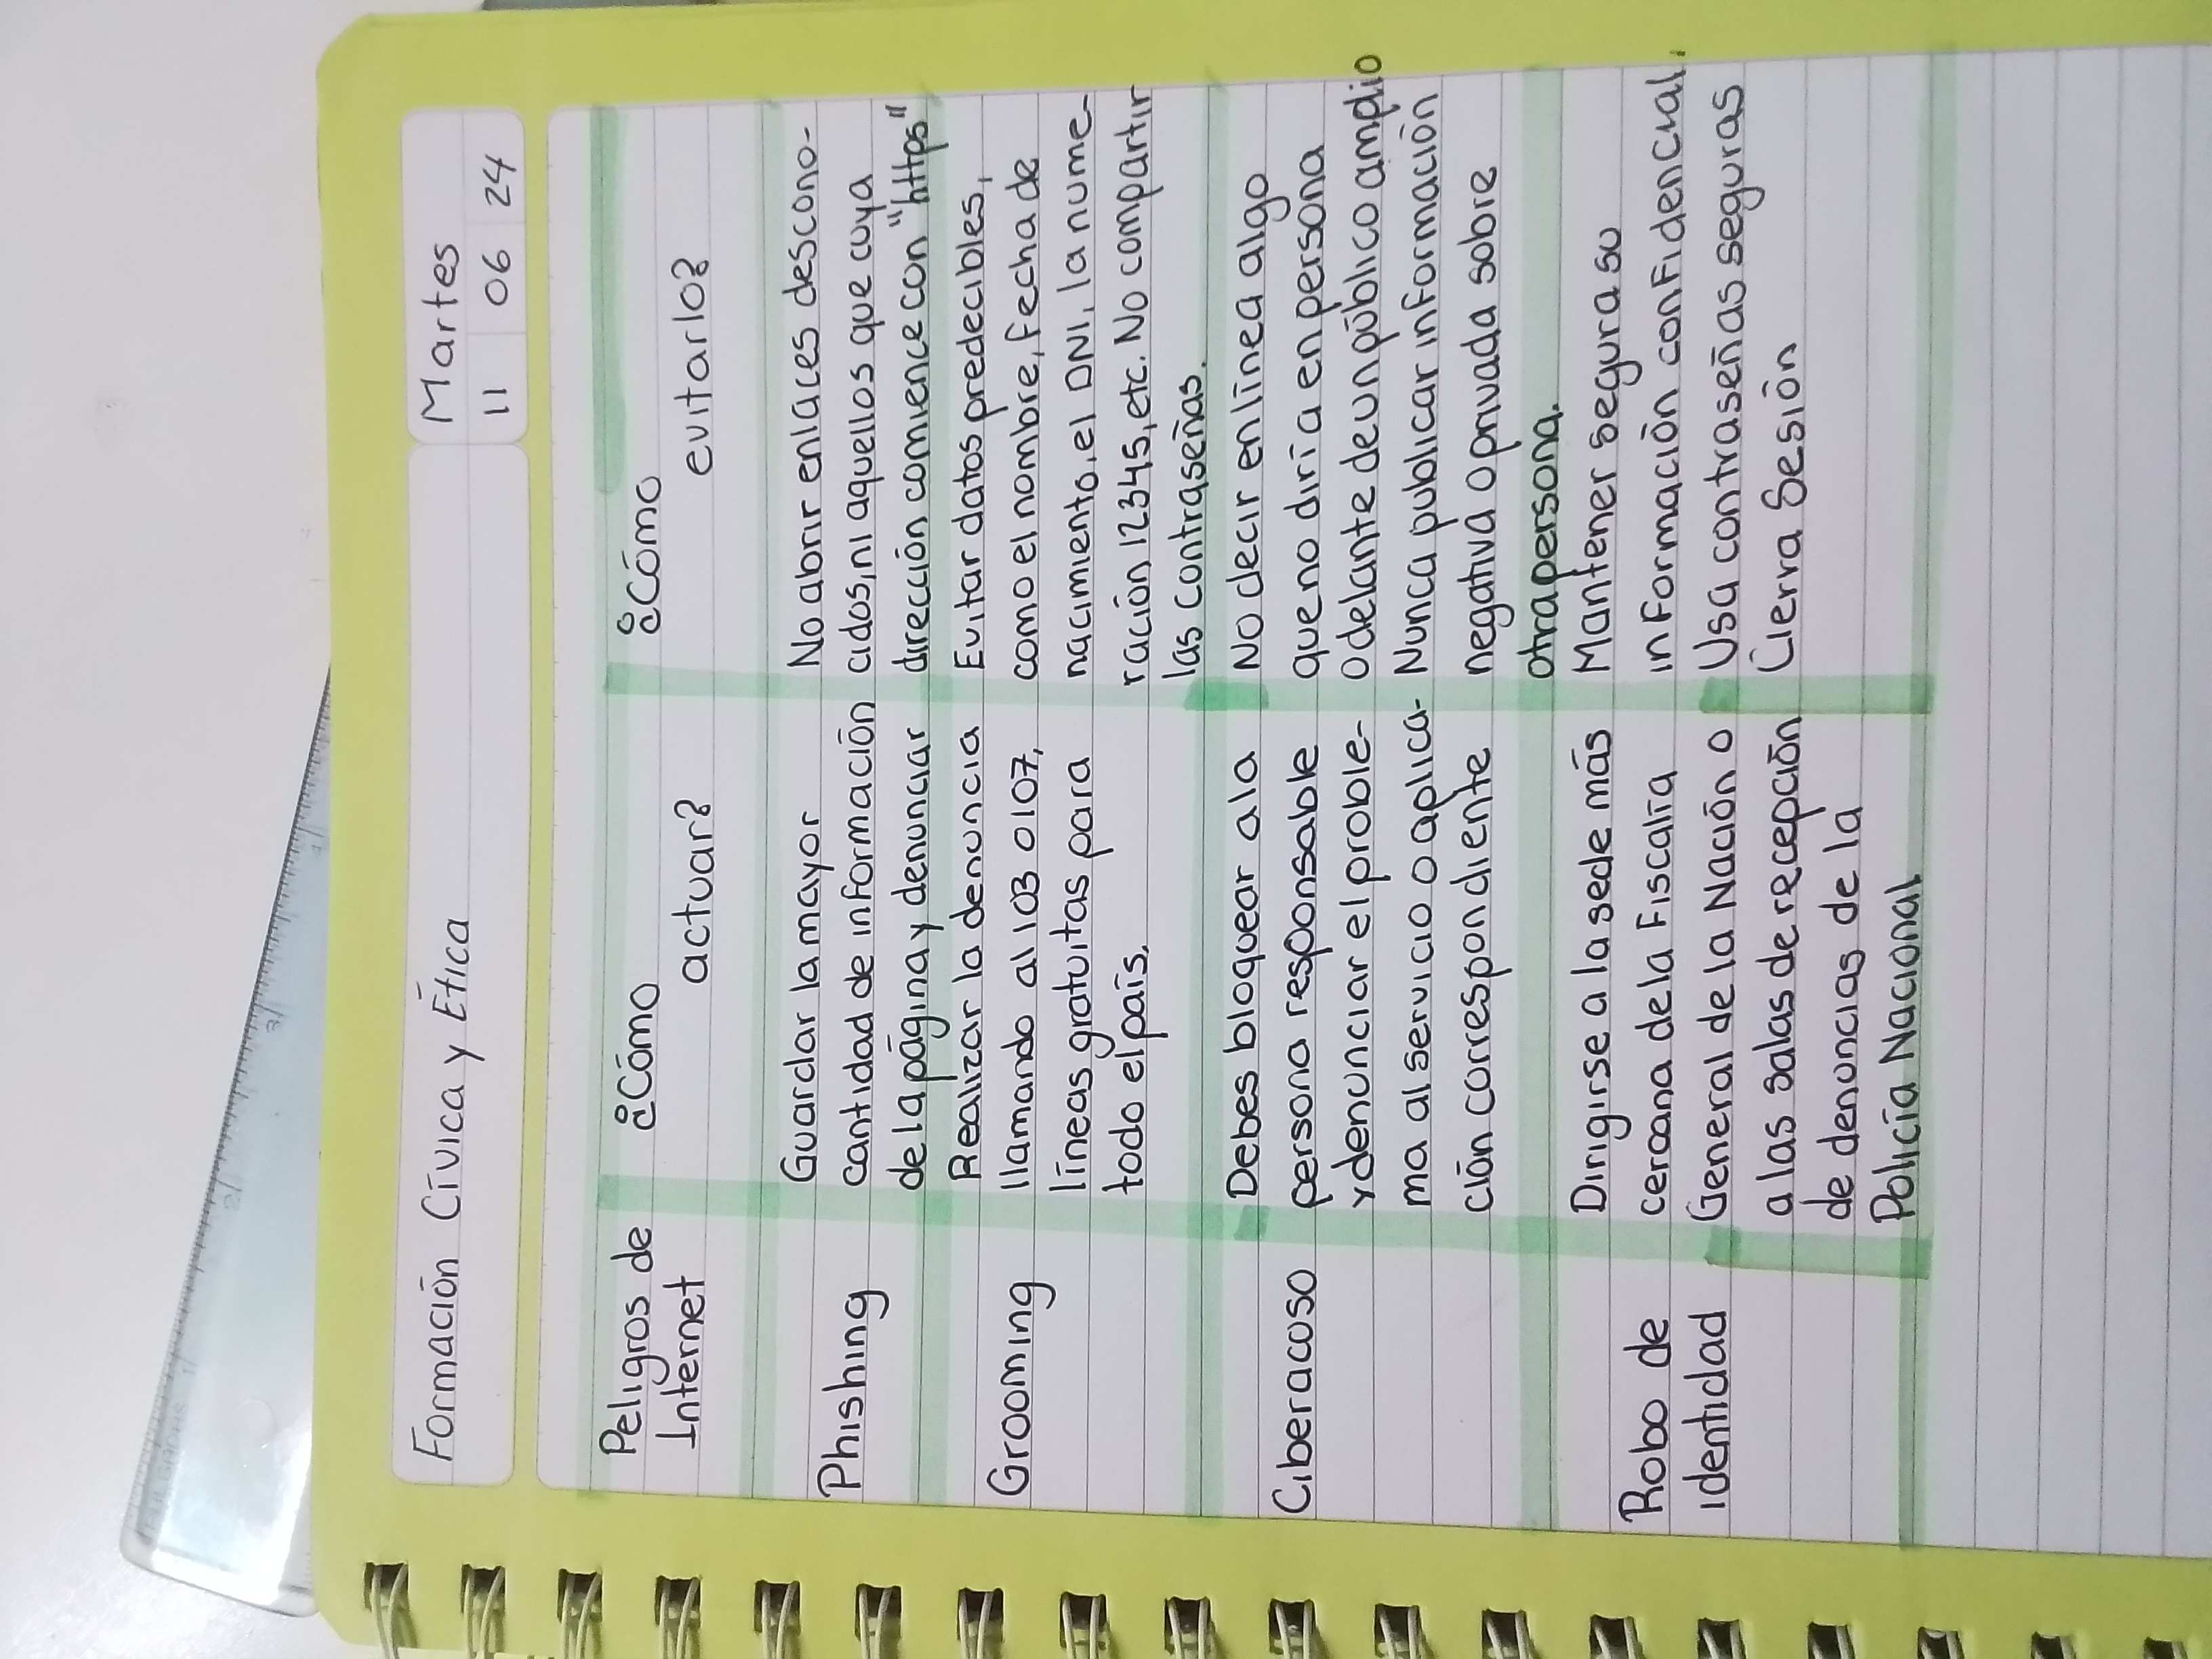 Formación Cívica y Ética
Martes
11 06 24
Peligros de
Internet
¿Cómo
actuar?
¿Cómo
evitarlo?
Phishing
Guardar la mayor
cantidad de información
de la página y denunciar
No abrir enlaces descono-
cidos, ni aquellos que cuya
dirección comience con "https"
Grooming
Realizar la denuncia
llamando al 103 0107,
líneas gratuitas para
todo el país.
Evitar datos predecibles,
como el nombre, fecha de
nacimiento, el DNI, la nume-
ración 12345, etc. No compartir
las contraseñas.
Ciberacoso
Debes bloquear a la
persona responsable
y denunciar el proble-
ma al servicio o aplica-
ción correspondiente
No decir en línea algo
que no diría en persona
o delante de un público amplio
Nunca publicar información
negativa o privada sobre
otra persona.
Robo de
identidad
Dirigirse a la sede más
cercana de la Fiscalía
General de la Nación o
a las salas de recepción
de denuncias de la
Policía Nacional
Mantener segura su
información confidencial.
Usa contraseñas seguras
Cierra Sesión